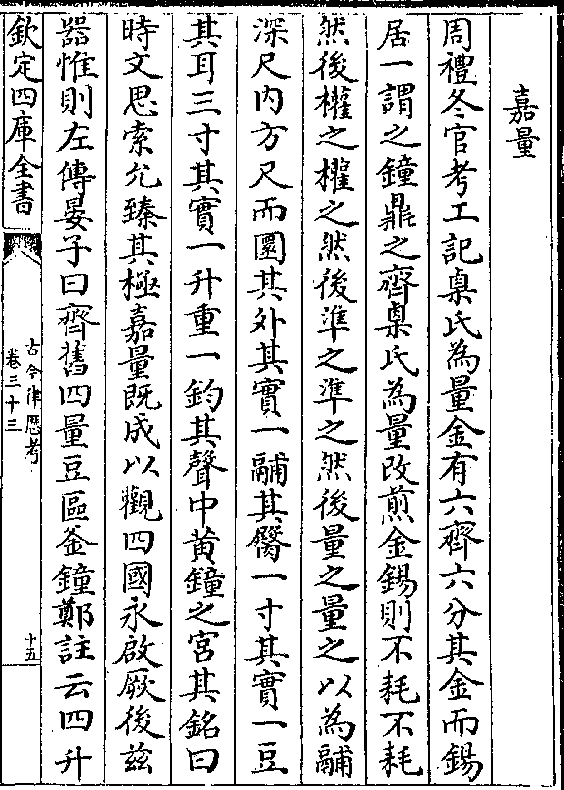 嘉量
周禮冬官考工記㮚氏為量金有六齊六分其金而錫
居一謂之鐘鼎之齊㮚氏為量改煎金錫則不耗不耗
然後權之權之然後準之準之然後量之量之以為鬴
深尺内方尺而圜其外其實一鬴其臋一寸其實一豆
其耳三寸其實一升重一鈞其聲中黄鐘之宫其銘曰
時文思索允臻其極嘉量既成以觀四國永啟厥後兹
器惟則左傳晏子曰齊舊四量豆區釜鐘鄭註云四升
欽定四庫全書
古今律歴考
卷三十三
十五